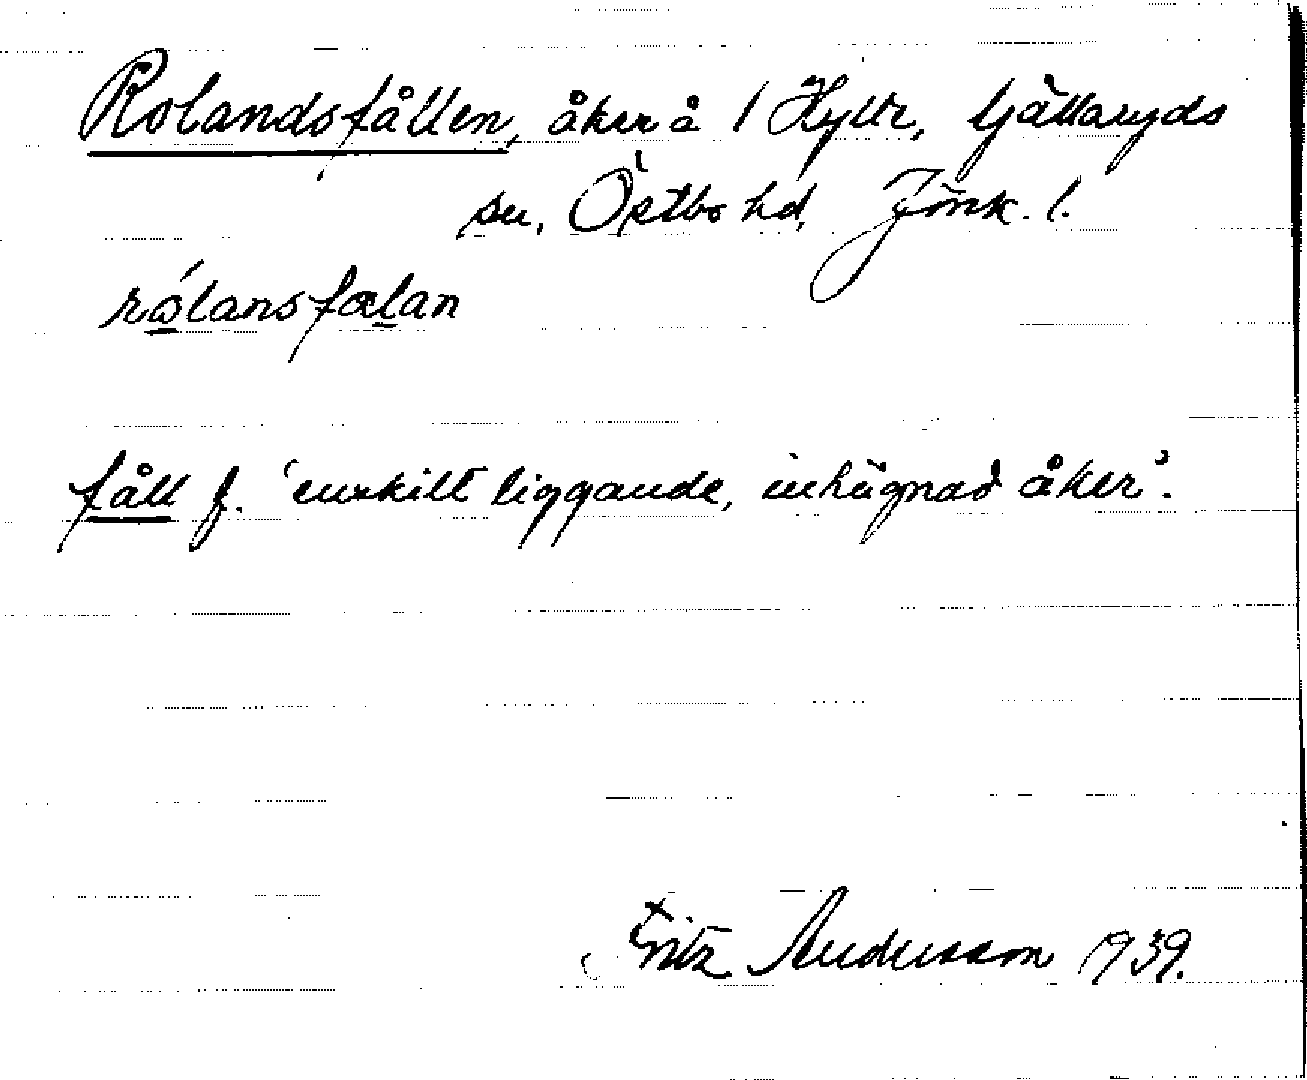 Rolandsfållen, åker å 1 Hyltr, Gällaryds
sn, Östbo hd, Jönk. l.
rólansfælan
fåll f. 'enskilt liggande, inhägnad åker'.
Fritz Andersson 1939.